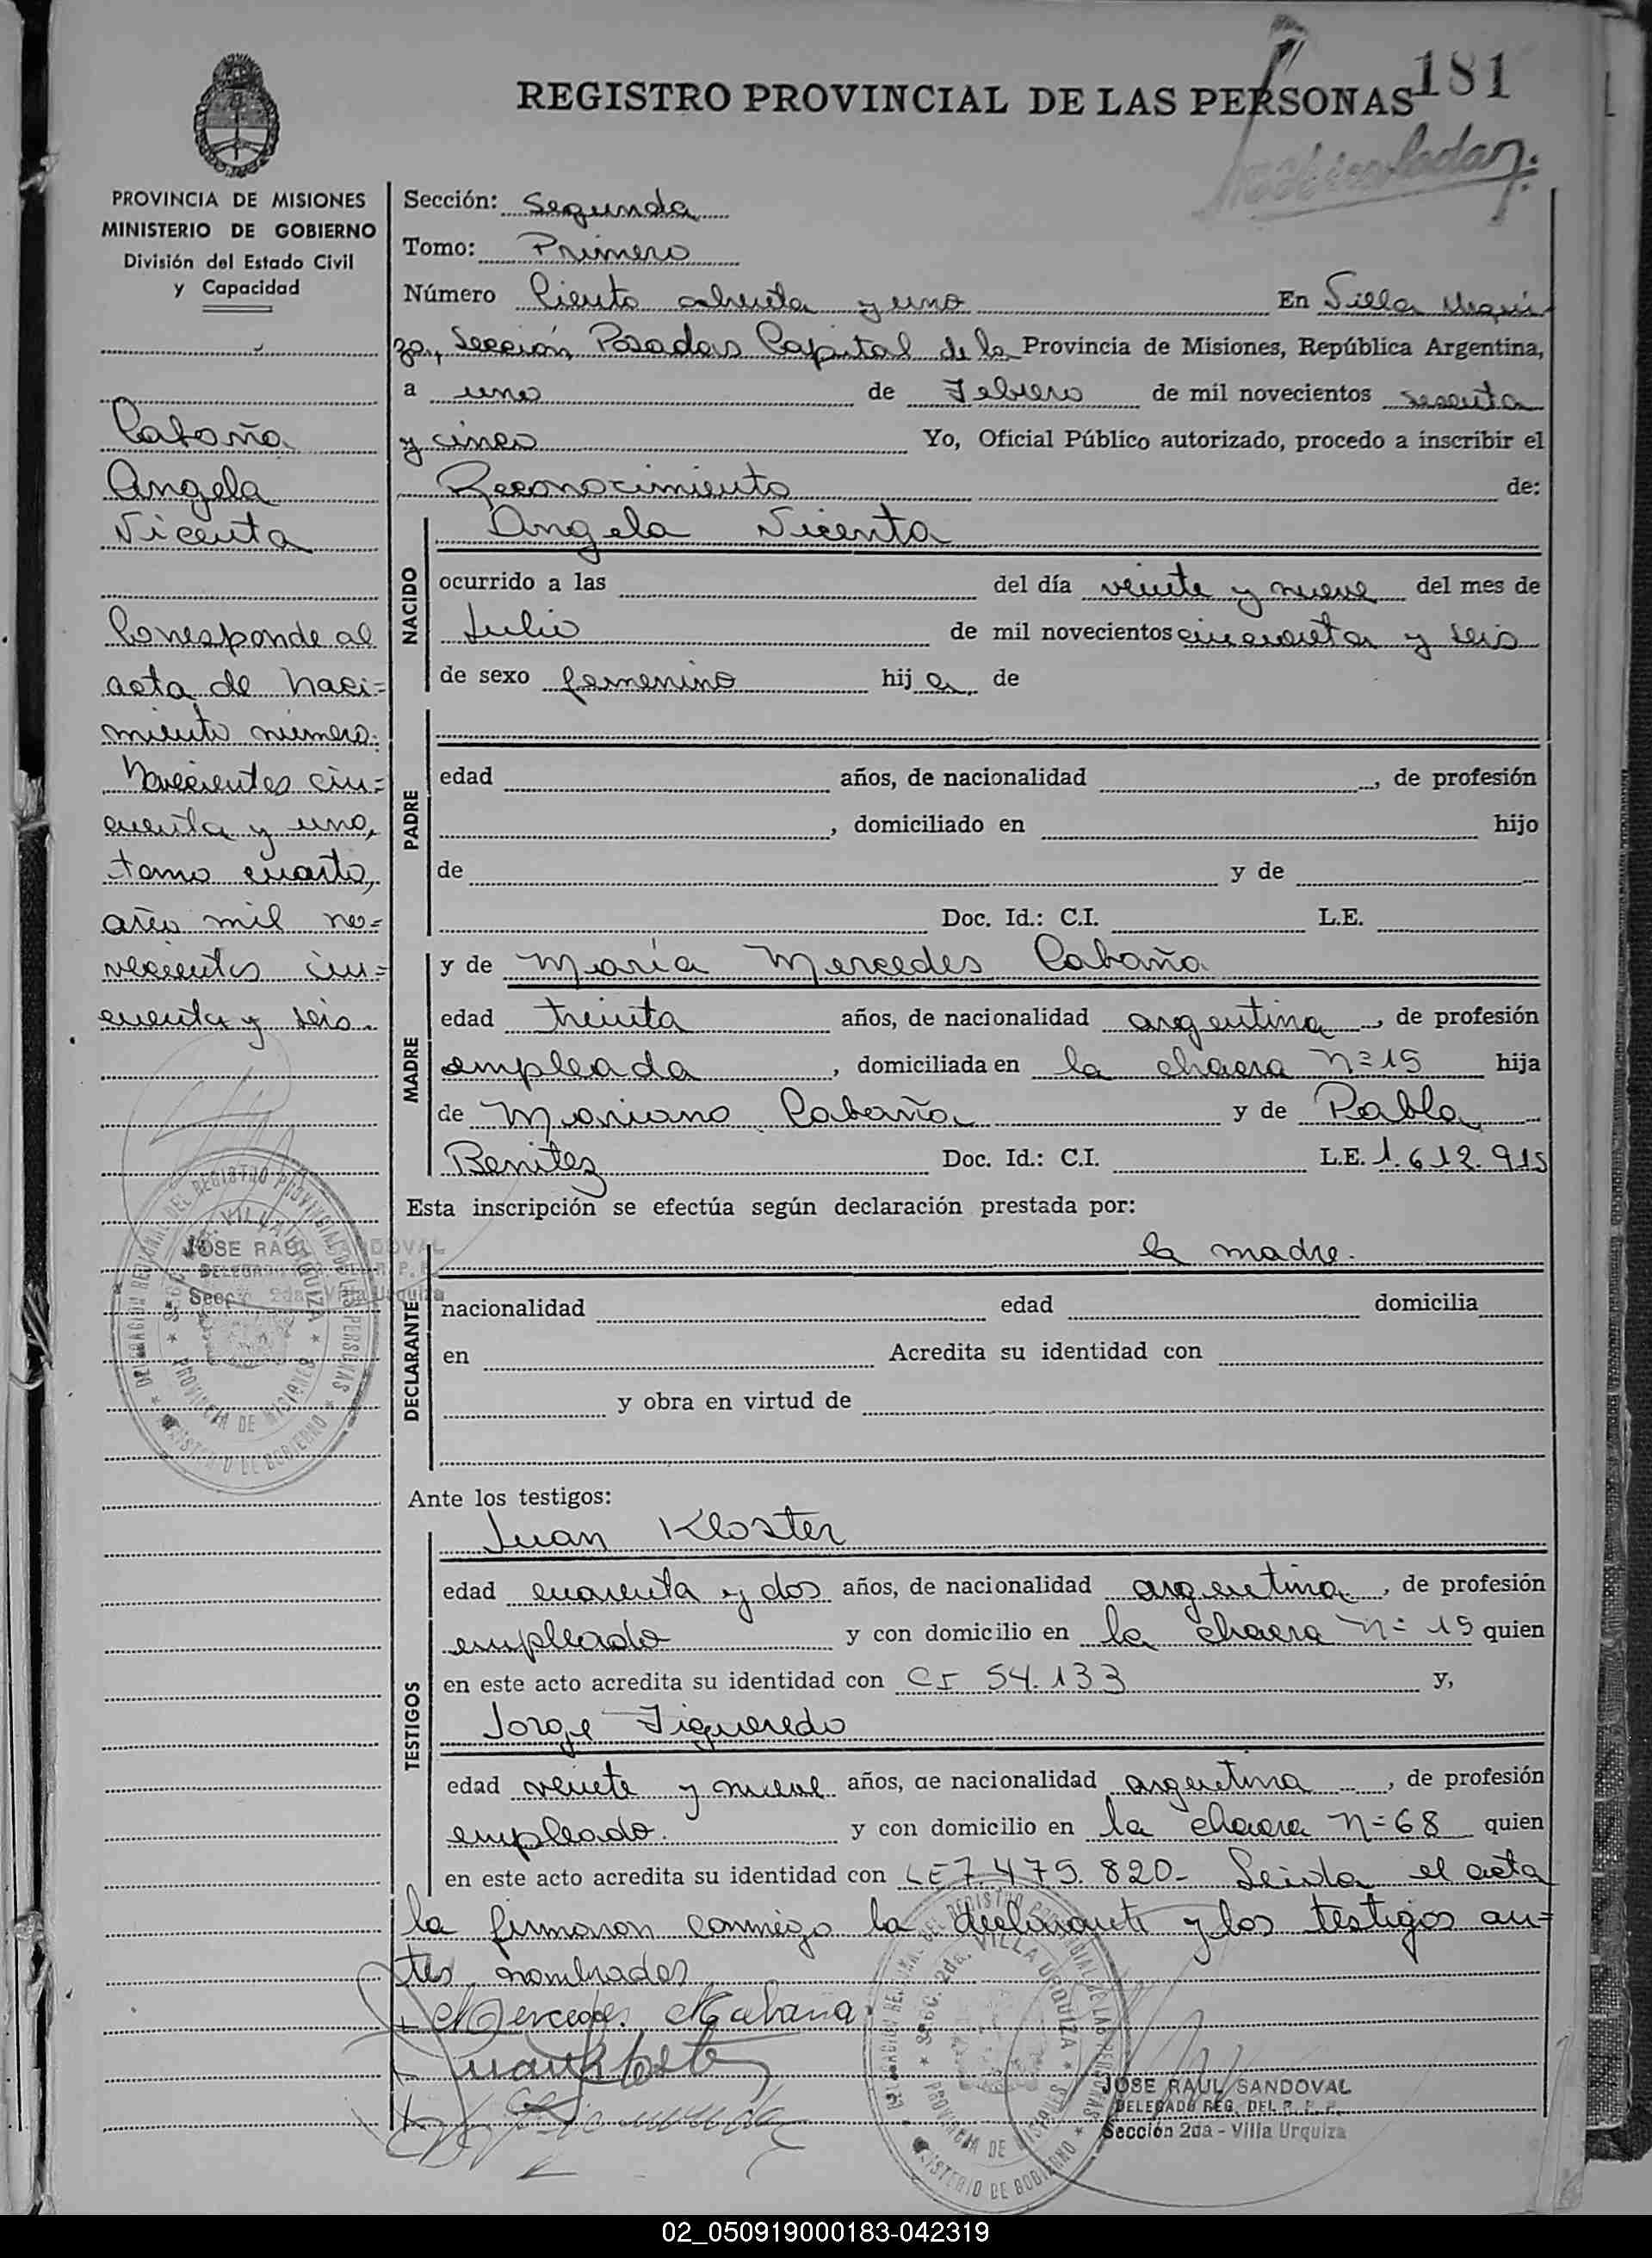 181
REGISTRO PROVINCIAL DE LAS PERSONAS
PROVINCIA DE MISIONES
MINISTERIO DE GOBIERNO
División del Estado Civil
y Capacidad
Cabaña
Angela
Vicenta
Corresponde al
acta de naci=
miento número
novecientos cin=
cuenta y uno,
tomo cuarto,
año mil no=
vecientos cin=
cuenta y seis.
JOSE RAUL SANDOVAL
DELEGADO REG. DEL R. P. P.
Secc. 2da - Villa Urquiza
Sección: Segunda
Tomo: Primero
Número Ciento ochenta y uno En Villa Urqui
za, Sección, Posadas Capital de la Provincia de Misiones, República Argentina,
a uno de Febrero de mil novecientos sesenta
y cinco Yo, Oficial Público autorizado, procedo a inscribir el
Reconocimiento de:
NACIDO
Angela Vicenta
ocurrido a las del día veinte y nueve del mes de
Julio de mil novecientos cincuenta y seis
de sexo femenino hija de
PADRE
edad años, de nacionalidad , de profesión
, domiciliado en hijo
de y de
Doc. Id.: C.I. L.E.
MADRE
y de María Mercedes Cabaña
edad treinta años, de nacionalidad argentina, de profesión
empleada, domiciliada en la chacra n=15 hija
de Mariano Cabaña y de Pabla
Benitez Doc. Id.: C.I. L.E. 1.612.915
Esta inscripción se efectúa según declaración prestada por:
la madre.
DECLARANTE
nacionalidad edad domicilia
en Acredita su identidad con
y obra en virtud de
Ante los testigos:
TESTIGOS
Juan Kloster
edad cuarenta y dos años, de nacionalidad argentina, de profesión
empleado y con domicilio en la chacra n= 15 quien
en este acto acredita su identidad con CI 54.133 y,
Jorge Figueredo
edad veinte y nueve años, de nacionalidad argentina, de profesión
empleado. y con domicilio en la chacra n=68 quien
en este acto acredita su identidad con LE 7.475.820- Leida el acta
la firmaron conmigo la declarante y los testigos an=
tes nombrados
Mercedes Cabana
Juan Kloster
DELEGACION REGIONAL DEL REGISTRO PROVINCIAL DE LAS PERSONAS
SECC. 2da. VILLA URQUIZA
PROVINCIA DE MISIONES
MINISTERIO DE GOBIERNO
JOSE RAUL SANDOVAL
DELEGADO REG. DEL R. P. P.
Sección 2da - Villa Urquiza
02_050919000183-042319